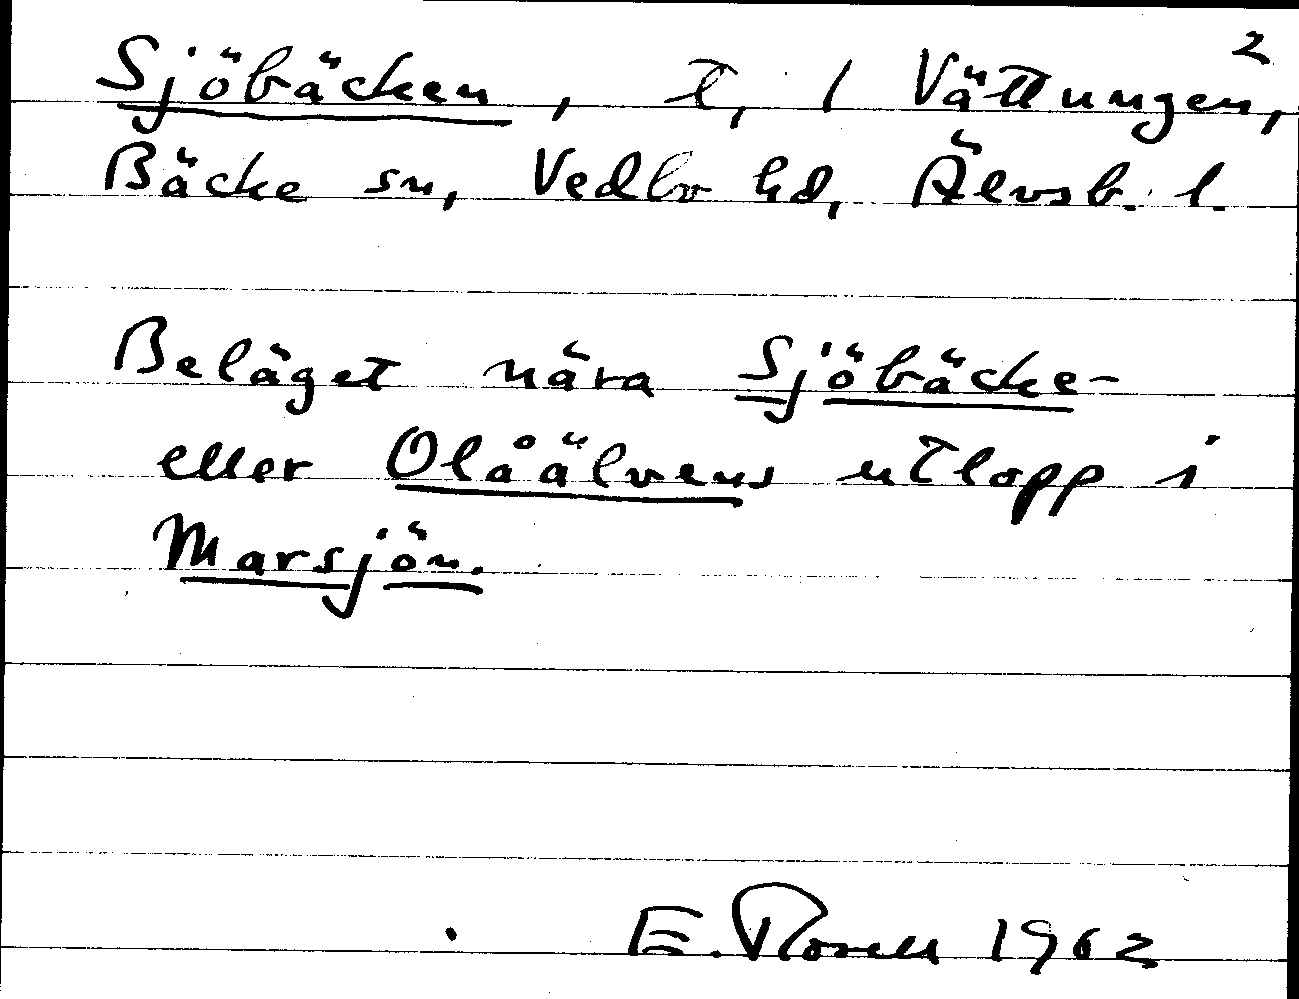 2
Sjöbäcken, t, 1 Vättungen,
Bäcke sn, Vedbo hd, Älvsb. l.
Beläget nära Sjöbäcke-
eller Olåälvens utlopp i
Marsjön.
E. Rosell 1962